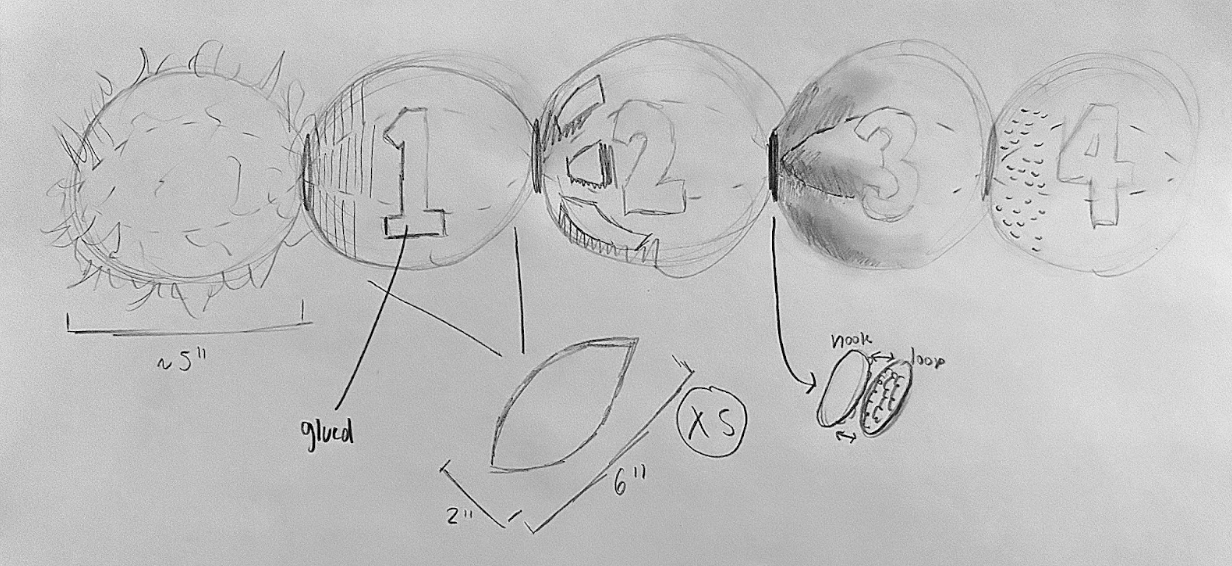 1 2 3 4
~5"
glued
2"
6"
X5
hook loop